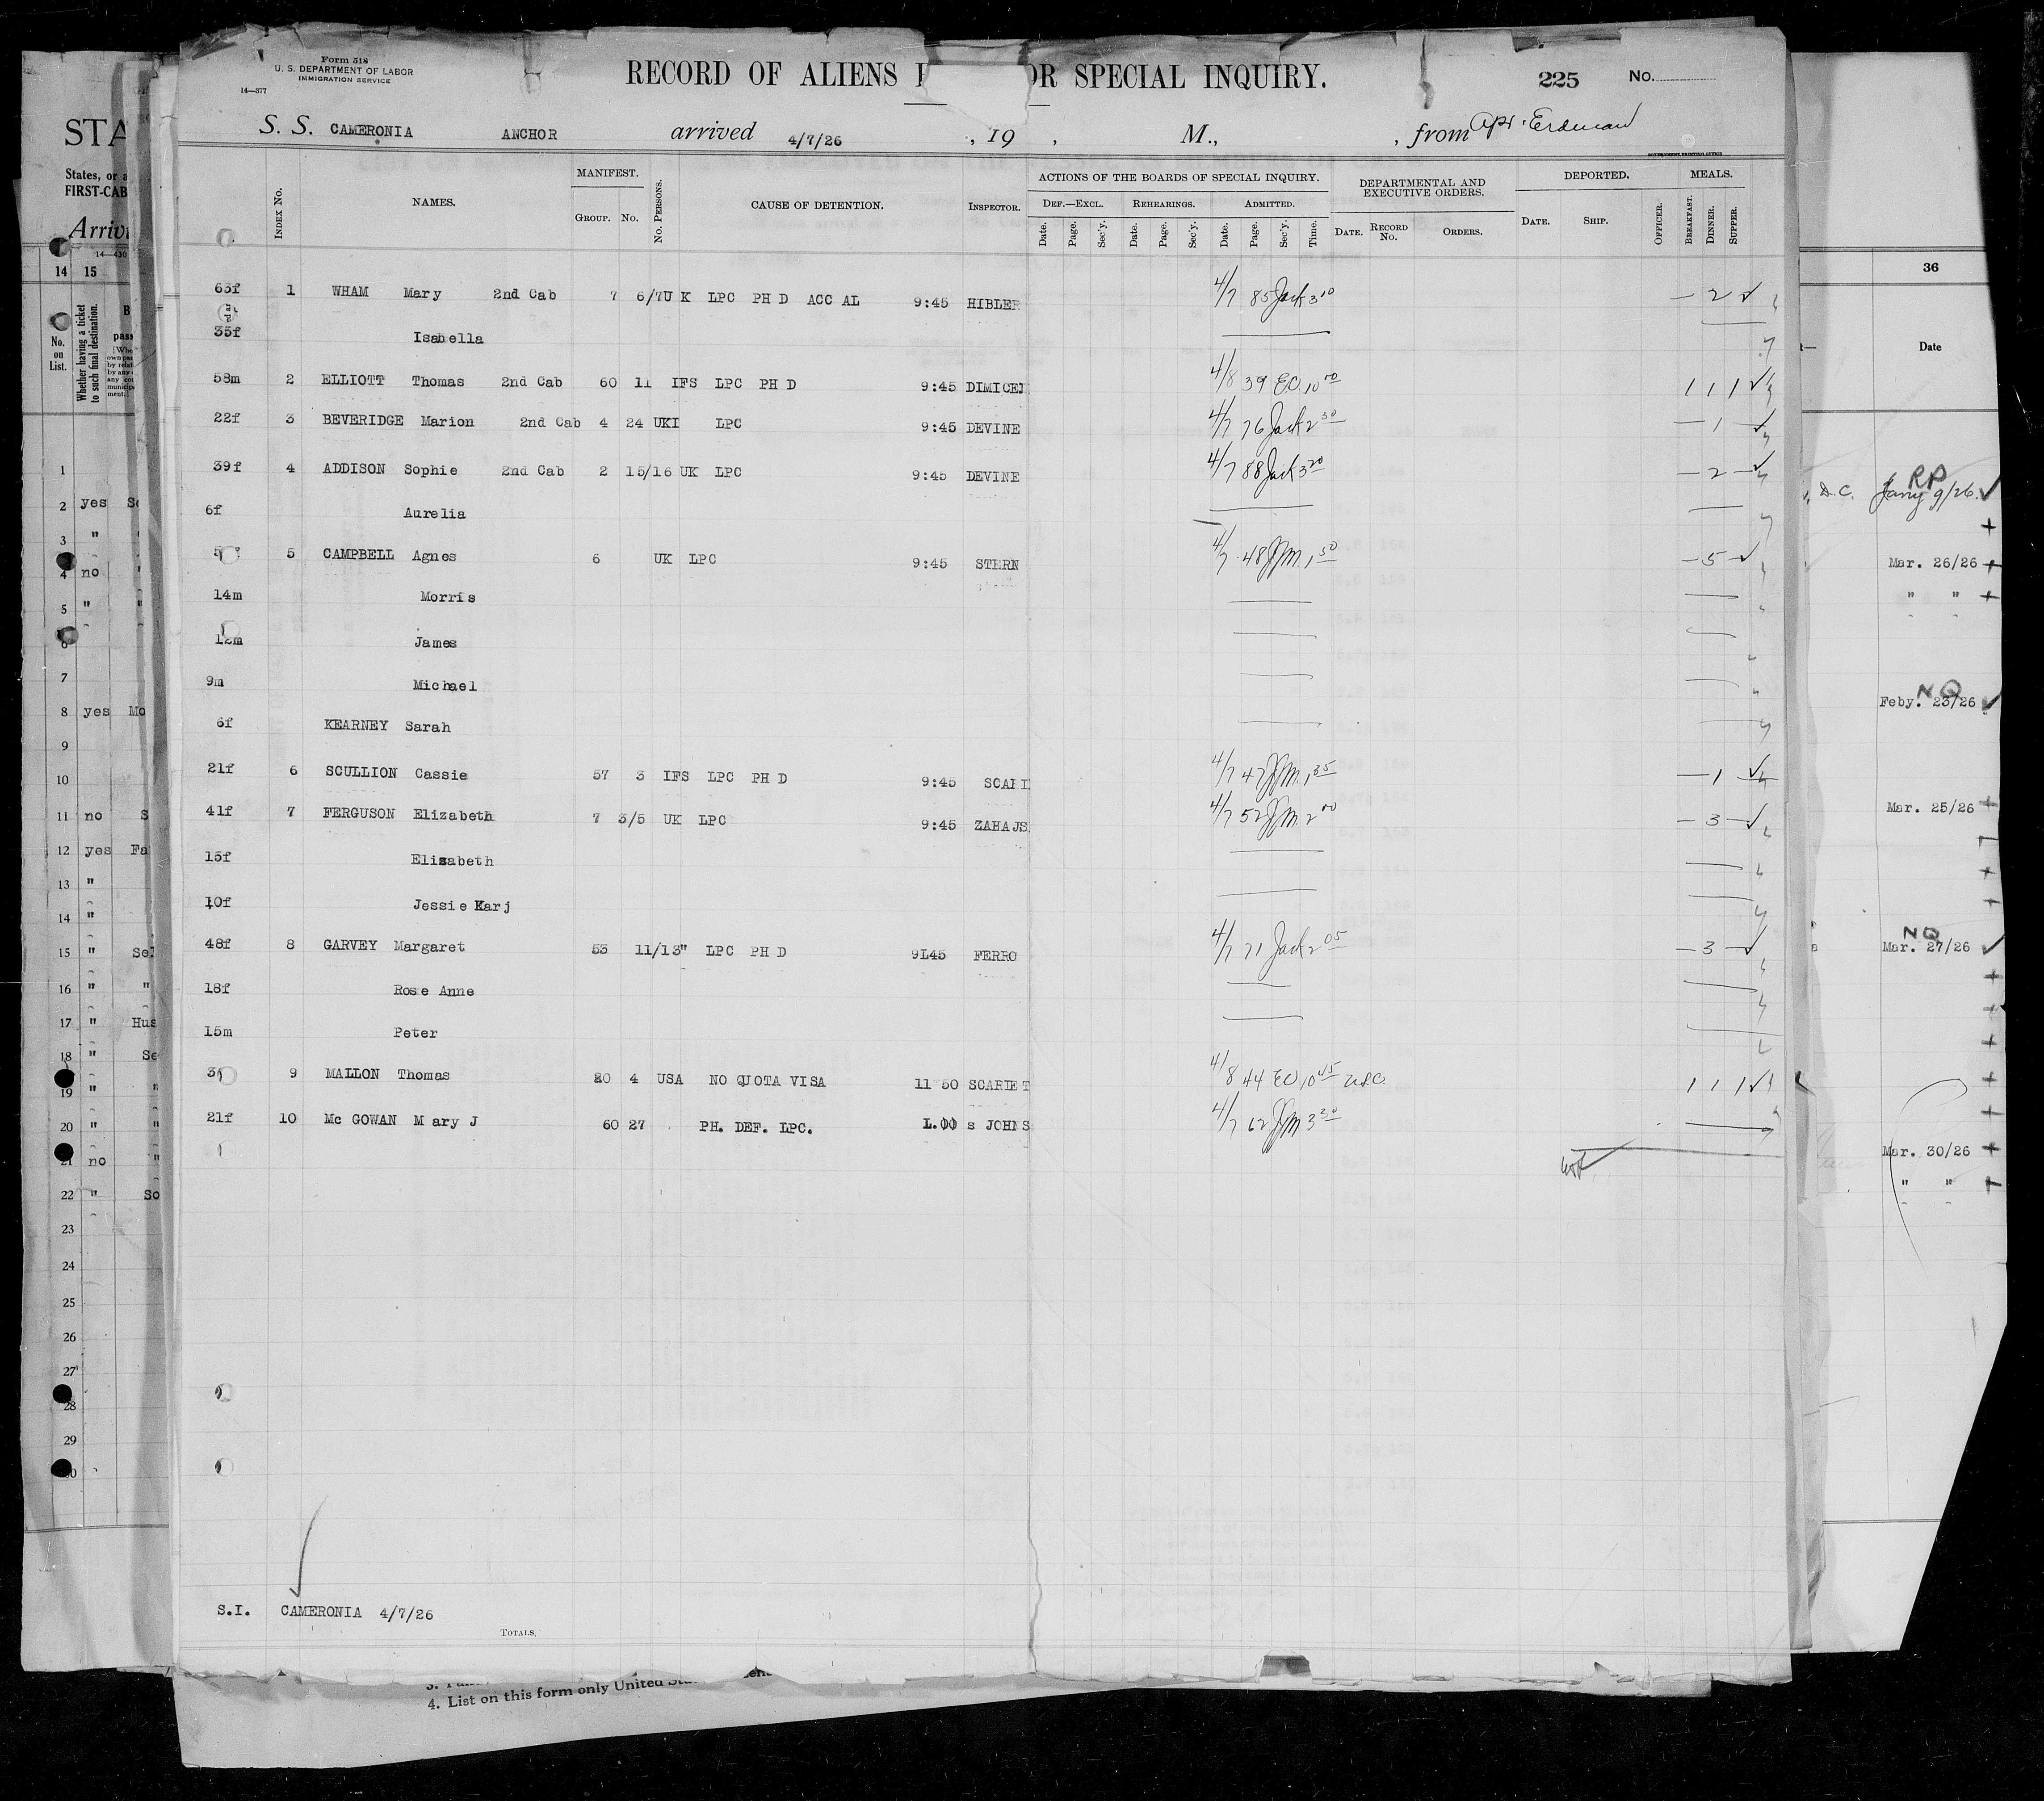 Form 518
U. S. DEPARTMENT OF LABOR
IMMIGRATION SERVICE
14—377
RECORD OF ALIENS OR SPECIAL INQUIRY.
225 No.
S. S. CAMERONIA ANCHOR arrived 4/7/26 , 19 , M., , from Erdman
GOVERNMENT PRINTING OFFICE
INDEX NO. NAMES. MANIFEST. GROUP. NO. NO. PERSONS. CAUSE OF DETENTION. INSPECTOR. ACTIONS OF THE BOARDS OF SPECIAL INQUIRY. DEPARTMENTAL AND EXECUTIVE ORDERS. DEPORTED. MEALS.
DEF.—EXCL. REHEARINGS. ADMITTED.
Date. Page. Sec'y. Date. Page. Sec'y. Date. Page. Sec'y. Time. DATE. RECORD NO. ORDERS. DATE. SHIP. OFFICER. BREAKFAST. DINNER. SUPPER.
65f 1 WHAM Mary 2nd Cab 7 6/7 U K LPC PH D ACC AL 9:45 HIBLER 4/7 85 Jack 3 10 — 2 ✓
35f Isabella
58m 2 ELLIOTT Thomas 2nd Cab 60 11 IFS LPC PH D 9:45 DIMICE 4/8 39 E.C. 10 1 1 1 ✓
22f 3 BEVERIDGE Marion 2nd Cab 4 24 UKI LPC 9:45 DEVINE 4/7 76 Jack 2 30 — 1 —
39f 4 ADDISON Sophie 2nd Cab 2 15/16 UK LPC 9:45 DEVINE 4/7 88 Jack 3 20 — 2 —
6f Aurelia
5 CAMPBELL Agnes 6 UK LPC 9:45 STERN 4/7 48 JJM. 1 50 — 5 —
14m Morris
12m James
9m Michael
6f KEARNEY Sarah
21f 6 SCULLION Cassie 57 3 IFS LPC PH D 9:45 SCARI 4/7 47 JJM. 1 35 — 1
41f 7 FERGUSON Elizabeth 7 3/5 UK LPC 9:45 ZAHAJS 4/7 52 JJM. 2 00 — 3 —
15f Elisabeth
10f Jessie Karj
48f 8 GARVEY Margaret 53 11/13" LPC PH D 9L45 FERRO 4/7 71 Jack 2 05 — 3 —
18f Rose Anne
15m Peter
9 MALLON Thomas 20 4 USA NO QUOTA VISA 11 50 SCARIET 4/8 44 EC 10 45 U.S.C. 1 1 1 ✓
21f 10 Mc GOWAN Mary J 60 27 PH. DEF. LPC. 1.00 s JOHNS 4/7 62 JJM 3 30
S.I. CAMERONIA 4/7/26
TOTALS.
STA
States, or a
FIRST-CAB
Arriv
14—430
14 15
No. on List.
Whether having a ticket to such final destination.
1
2 yes
3 "
4 no "
5 " "
6
7
8 yes Mo
9
10
11 no S
12 yes Fa
13 "
14 "
15 " Sel
16 " "
17 " Hus
18 " Se
19 " "
20 " "
21 no "
22 " So
23
24
25
26
27
28
29
30
36
Date
RP
D.C. Jany 9/26. ✓
Mar. 26/26
" "
NQ
Feby. 23/26
Mar. 25/26
NQ
Mar. 27/26
Mar. 30/26
" "
4. List on this form only United